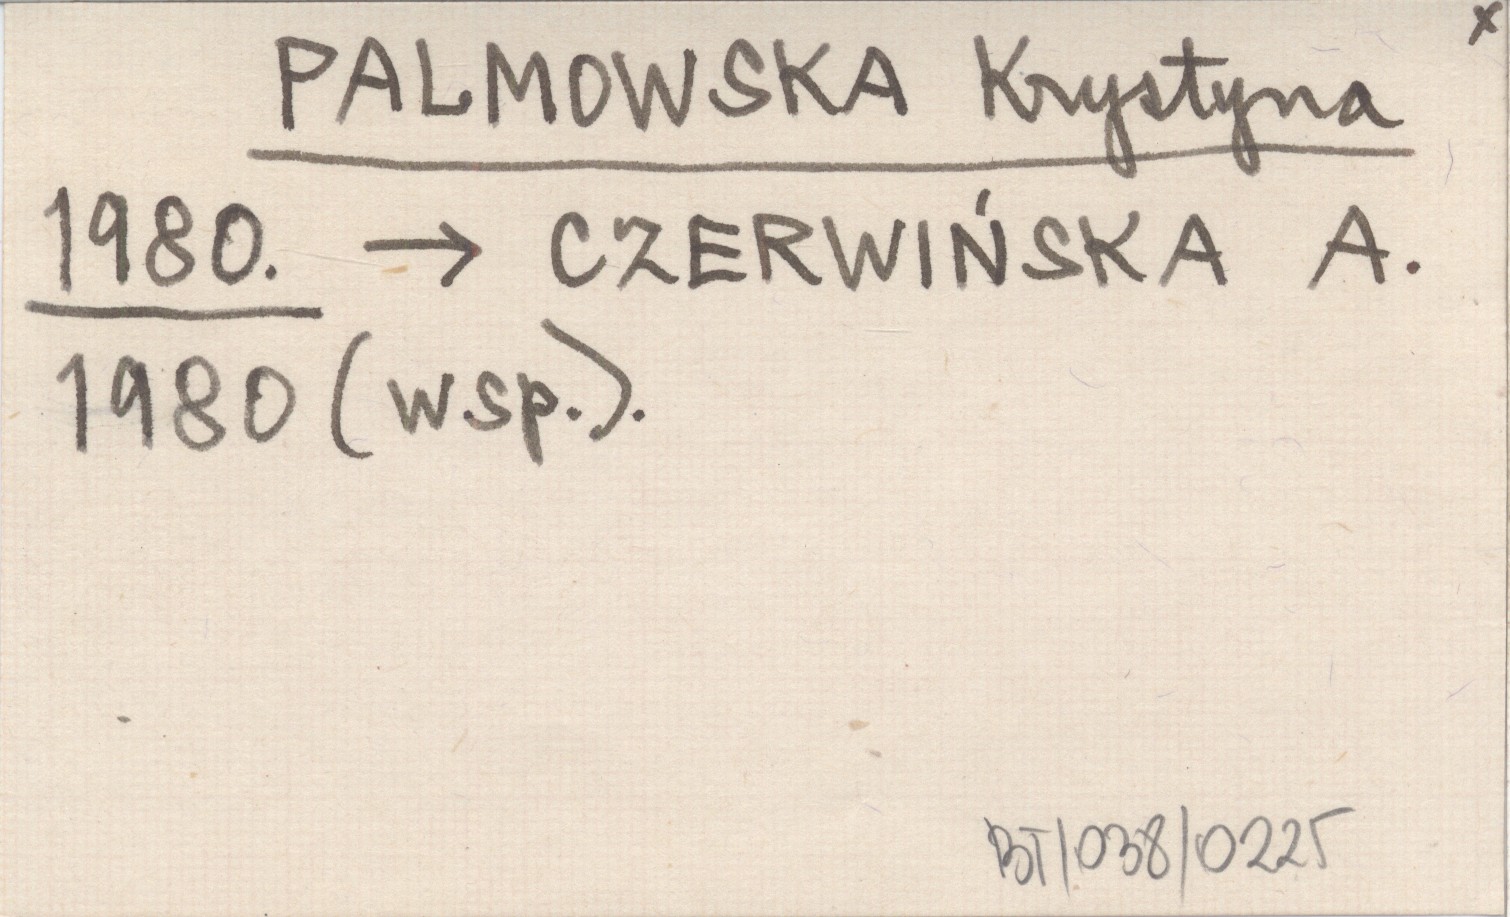 x
PALMOWSKA Krystyna
1980. → CZERWIŃSKA A.
1980 (wsp.).
BT/038/0225